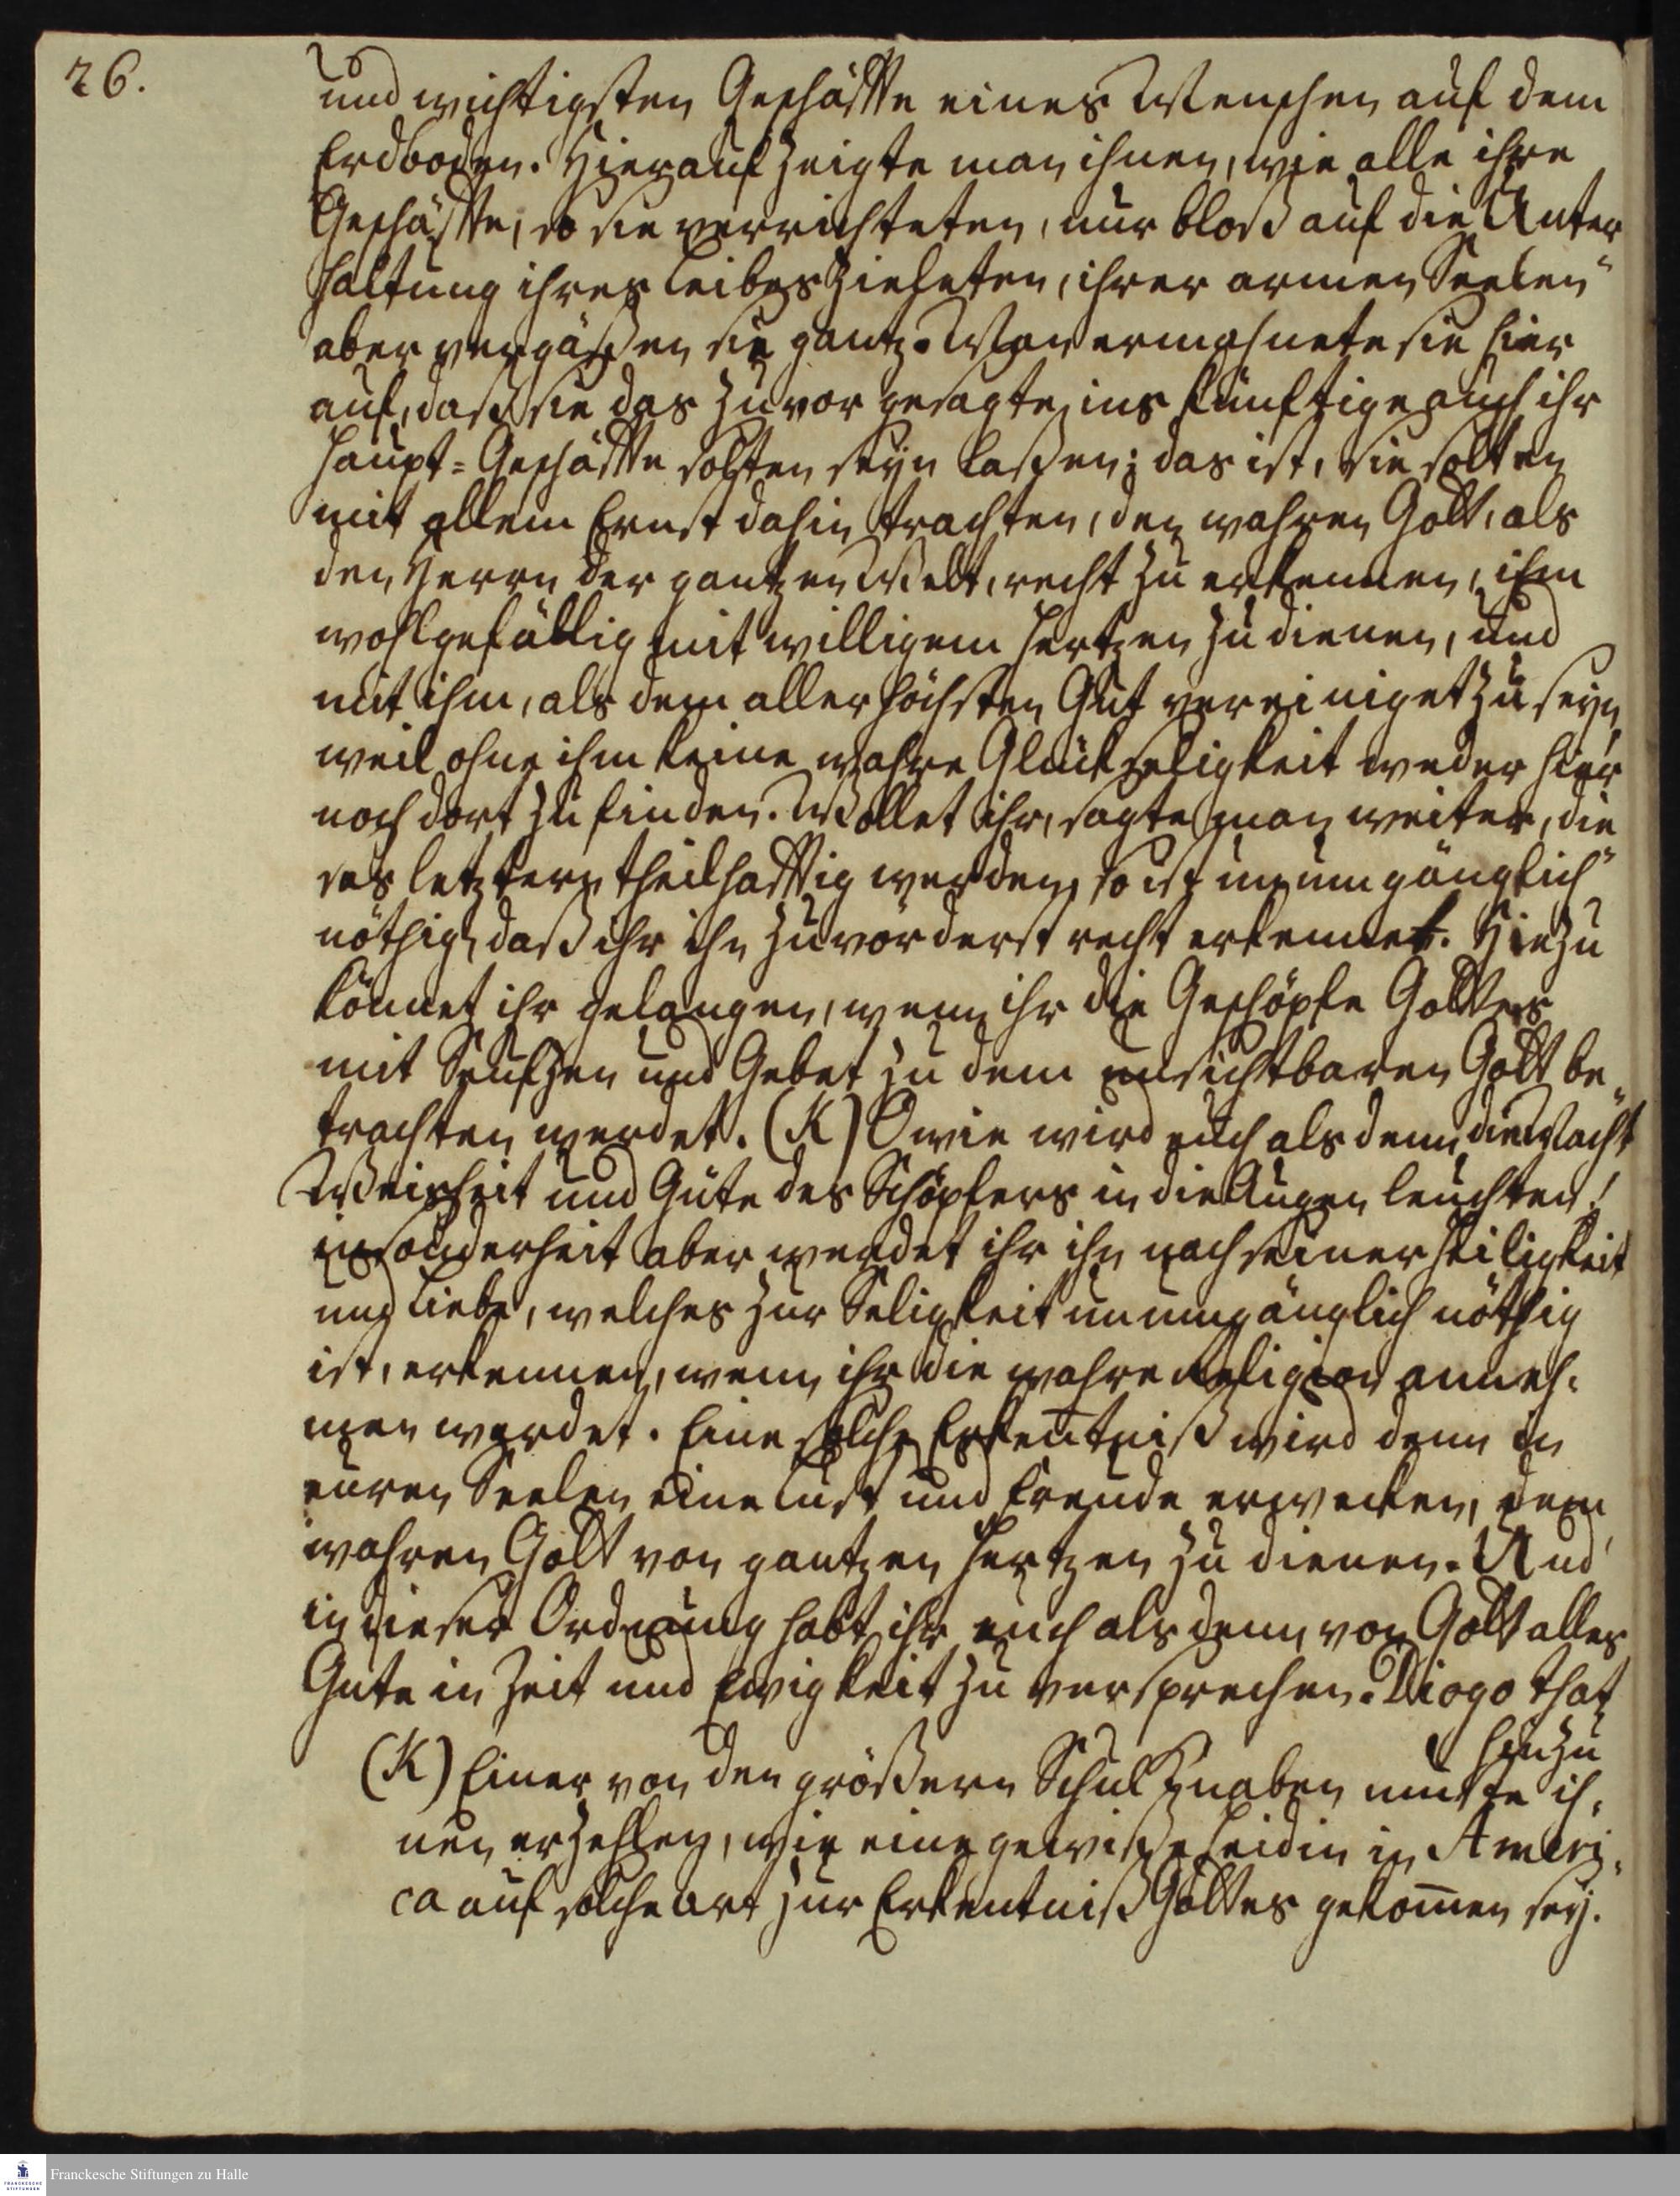 26.
und wichtigsten Geschäffte eines Menschen auf dem
Erdboden. Hierauf zeigte man ihnen, wie alle ihre
Geschäffte, so sie verrichteten, nur bloß auf die Unter
haltung ihres Leibes zieleten, ihrer armen Seelen
aber vergäßen sie gantz. Man ermahnete sie hier
auf, daß sie das zuvor gesagte ins künftige auch ihr
Haupt-Geschäffte solten seyn laßen; das ist, sie solten
mit allem Ernst dahin trachten, den wahren Gott, als
den Herrn der gantzen Welt, recht zu erkennen, ihm
wohlgefällig mit willigem Hertzen zu dienen, und
mit ihm, als dem allerhöchsten Gut vereiniget zu seyn,
weil ohne ihm keine wahre Glückseligkeit weder hier
noch dort zu finden. Wollet ihr, sagte man weiter, die
ses letztern theilhafftig werden, so ist unumgänglich
nöthig, daß ihr ihn zuvörderst recht erkennet. Hiezu
könnet ihr gelangen, wenn ihr die Geschöpfe Gottes
mit Seufzen und Gebet zu dem unsichtbaren Gott be
trachten werdet. (K) O wie wird euch als denn die Macht
Weisheit und Güte des Schöpfers in die Augen leuchten!
insonderheit aber werdet ihr ihn nach seiner Heiligkeit
und Liebe, welches zur Seligkeit unumgänglich nöthig
ist, erkennen, wenn ihr die wahre Religion anneh-
men werdet. Eine solche Erkentniß wird denn in
euren Seelen eine Lust und Freude erwecken, dem
wahren Gott von gantzen Hertzen zu dienen. Und
in dieser Ordnung habt ihr euch als denn von Gott alles
Gute in Zeit und Ewigkeit zu versprechen. Diogo that
hinzu
(K) Einer von den größern Schul Knaben muste ih-
nen erzehlen, wie eine gewiße Heidin in Ameri-
ca auf solche art zur Erkentniß Gottes gekom̄en sey.
Franckesche Stiftungen zu Halle
FRANCKESCHE
STIFTUNGEN